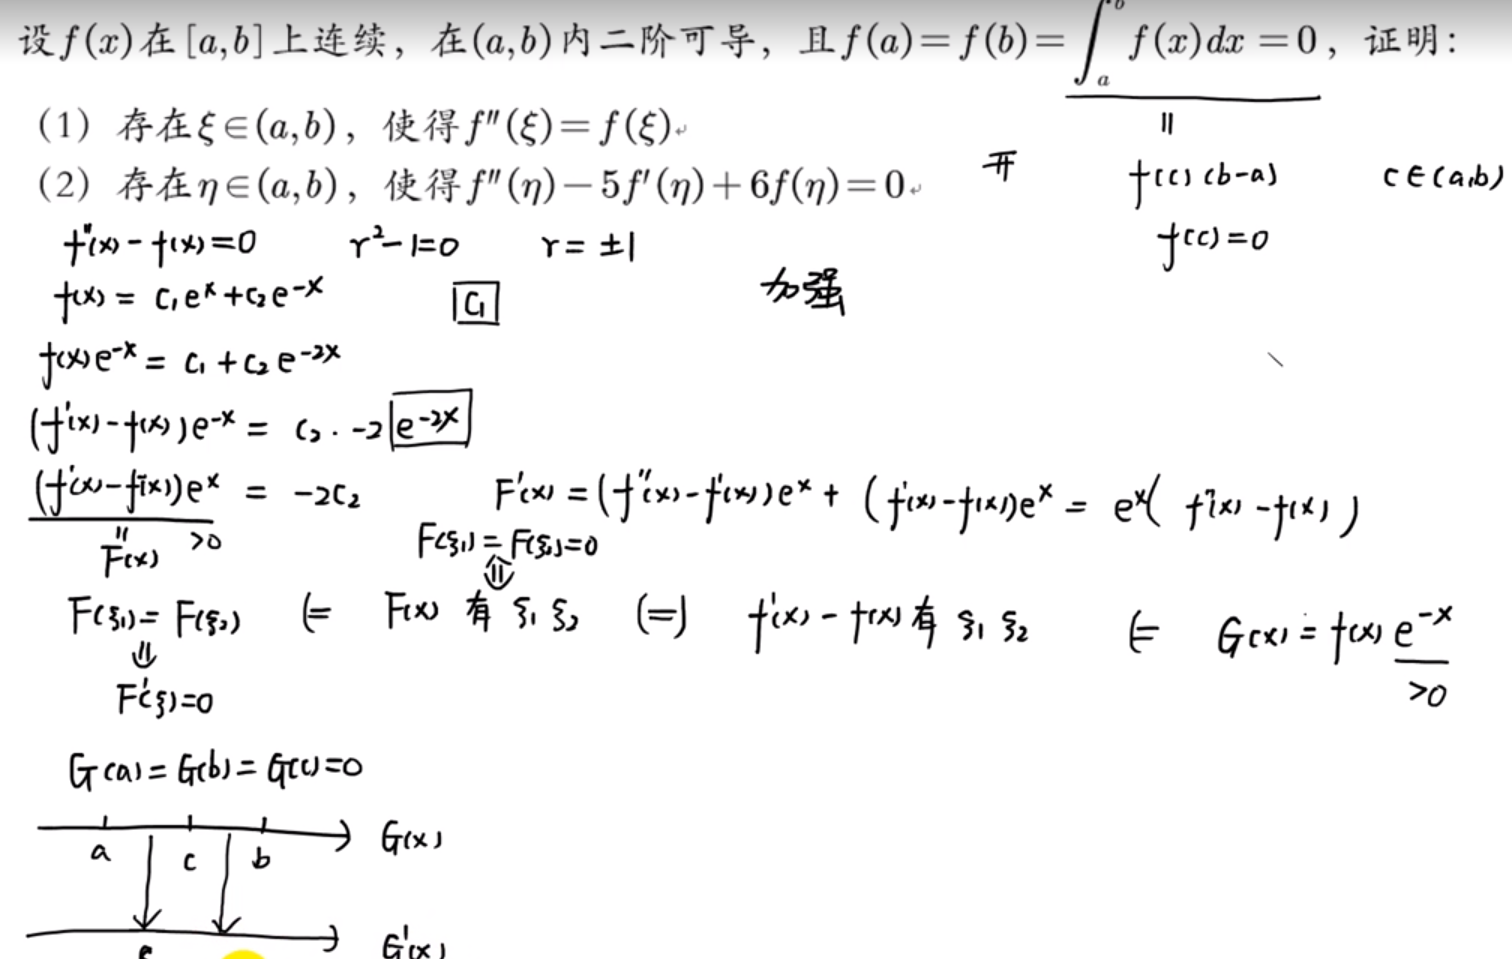 设f(x)在[a,b]上连续，在(a,b)内二阶可导，且f(a)=f(b)=∫_a^b f(x)dx=0，证明：
(1) 存在ξ∈(a,b)，使得f″(ξ)=f(ξ)
(2) 存在η∈(a,b)，使得f″(η)-5f′(η)+6f(η)=0
开
=
f(c)(b-a) c∈(a,b)
f(c)=0
加强
f″(x)-f(x)=0 r²-1=0 r=±1
f(x)=c₁eˣ+c₂e⁻ˣ C₁
f(x)e⁻ˣ=c₁+c₂e⁻²ˣ
(f′(x)-f(x))e⁻ˣ=c₂·-2e⁻²ˣ
(f′(x)-f(x))eˣ=-2c₂ F′(x)=(f″(x)-f′(x))eˣ+(f′(x)-f(x))eˣ=eˣ(f″(x)-f(x))
= >0 F(ξ₁)=F(ξ₂)=0
F(x) ⇓
F(ξ₁)=F(ξ₂) ⇐ F(x)有ξ₁ξ₂ (=) f′(x)-f(x)有ξ₁ξ₂ ⇐ G(x)=f(x)e⁻ˣ
⇓ >0
F′(ξ)=0
G(a)=G(b)=G(c)=0
a c b G(x)
G′(x)